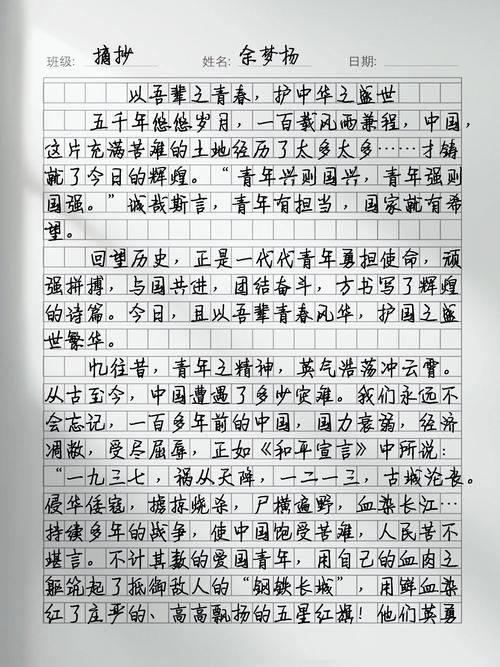 班级: 摘抄 姓名: 余梦杨 日期:
以吾辈之青春，护中华之盛世
五千年悠悠岁月，一百载风雨兼程，中国，
这片充满苦难的土地经历了太多太多……才铸
就了今日的辉煌。“青年兴则国兴，青年强则
国强。”诚哉斯言，青年有担当，国家就有希
望。
回望历史，正是一代代青年勇担使命，顽
强拼搏，与国共进，团结奋斗，方书写了辉煌
的诗篇。今日，且以吾辈青春风华，护国之盛
世繁华。
忆往昔，青年之精神，英气浩荡冲云霄。
从古至今，中国遭遇了多少灾难。我们永远不
会忘记，一百多年前的中国，国力衰弱，经济
凋敝，受尽屈辱，正如《和平宣言》中所说：
“一九三七，祸从天降，一二一三，古城沦丧。
侵华倭寇，掳掠烧杀，尸横遍野，血染长江…
持续多年的战争，使中国饱受苦难，人民苦不
堪言。不计其数的爱国青年，用自己的血肉之
躯筑起了抵御敌人的“钢铁长城”，用鲜血染
红了庄严的、高高飘扬的五星红旗！他们英勇